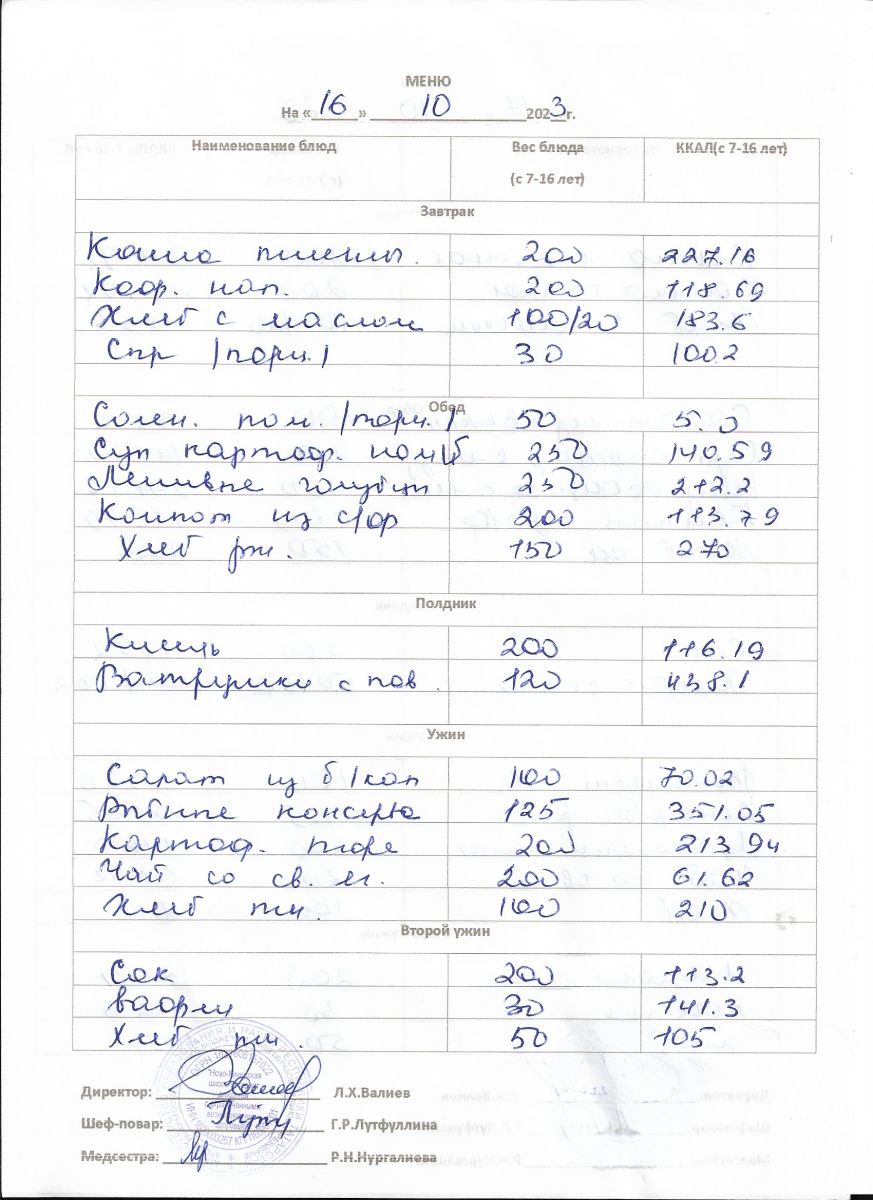 МЕНЮ
На « 16 » 10 2023 г.
Наименование блюд Вес блюда (с 7-16 лет) ККАЛ(с 7-16 лет)
Завтрак
Каша пшены. 200 227.16
Коф. нап. 200 118.69
Хлеб с маслом 100/20 183.6
Сыр /порц./ 30 100.2
Обед
Солен. пом. /порц./ 50 5.0
Суп картоф. 250 140.59
Ленивые голубцы 250 212.2
Компот из с/фр 200 113.79
Хлеб рж. 150 270
Полдник
Кисель 200 116.19
Ватрушки с пов. 120 438.1
Ужин
Салат из б/кап 100 70.02
Рыбные консервы 125 351.05
Картоф. пюре 200 213.94
Чай со св. яг. 200 61.62
Хлеб пш. 100 210
Второй ужин
Сок 200 113.2
вафли 30 141.3
Хлеб пш. 50 105
Директор: Л.Х.Валиев
Шеф-повар: Г.Р.Лутфуллина
Медсестра: Р.Н.Нургалиева